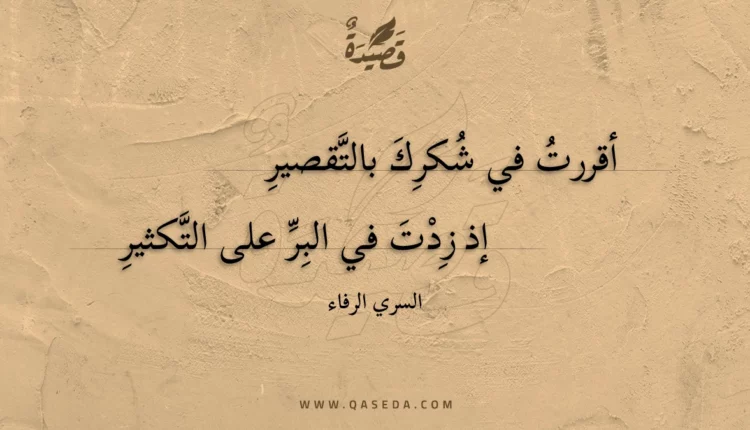 قَصِيدَةٌ
أقررتُ في شُكرِكَ بالتَّقصيرِ
إذ زِدْتَ في البِرِّ على التَّكثيرِ
السري الرفاء
WWW.QASEDA.COM